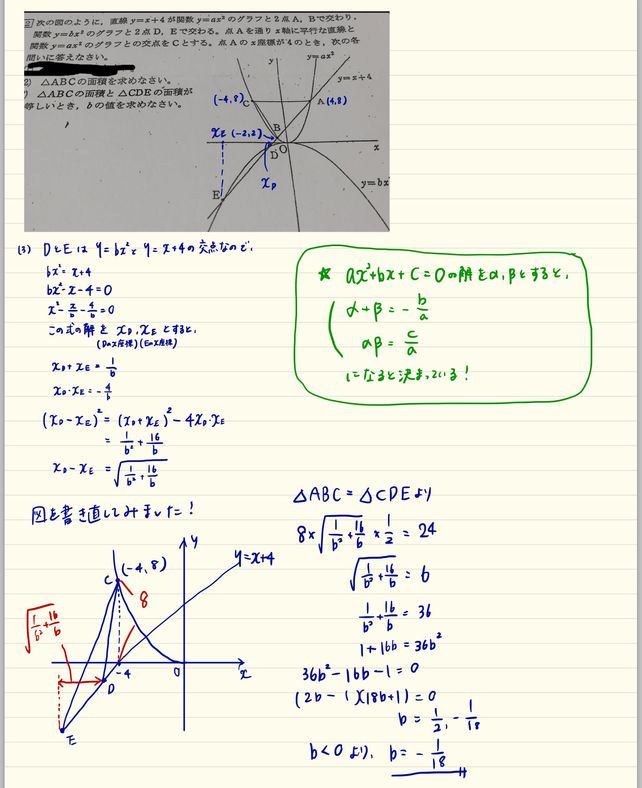 次の図のように,直線 y=x+4 が関数 y=ax² のグラフと2点 A, B で交わり,
関数 y=bx² のグラフと2点 D, E で交わる。点Aを通り x軸に平行な直線と
関数 y=ax² のグラフとの交点をCとする。点Aの x座標が4のとき,次の各
問いに答えなさい。
2) △ABCの面積を求めなさい。
) △ABCの面積と△CDEの面積が
等しいとき,bの値を求めなさい。
y
y=ax²
y=x+4
(-4,8)
C
A
(4,8)
B
xE
(-2,2)
D
O
x
xD
E
y=bx²
(3) DとEは y=bx²と y=x+4の交点なので、
bx²=x+4
bx²-x-4=0
x²-x/b-4/b=0
この式の解を xD, xE とすると、
(Dのx座標)(Eのx座標)
xD+xE=1/b
xD・xE=-4/b
(xD-xE)²=(xD+xE)²-4xD・xE
=1/b²+16/b
xD-xE=√(1/b²+16/b)
★ ax²+bx+C=0の解をα,βとすると、
α+β=-b/a
αβ=c/a
になると決まっている!
図を書き直してみました!
y
y=x+4
C
(-4,8)
8
√(1/b²+16/b)
-4
O
x
D
E
△ABC=△CDEより
8×√(1/b²+16/b)×1/2=24
√(1/b²+16/b)=6
1/b²+16/b=36
1+16b=36b²
36b²-16b-1=0
(2b-1)(18b+1)=0
b=1/2,-1/18
b<0より、b=-1/18